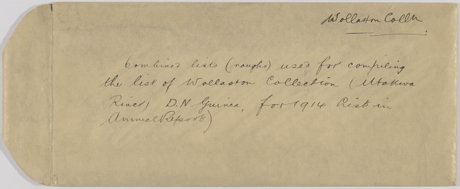 Wollaston Colln.
Combined lists (rough) used for compiling
the list of Wollaston Collection (Utakwa
River) D.N. Guinea, for 1914
Annual Report)